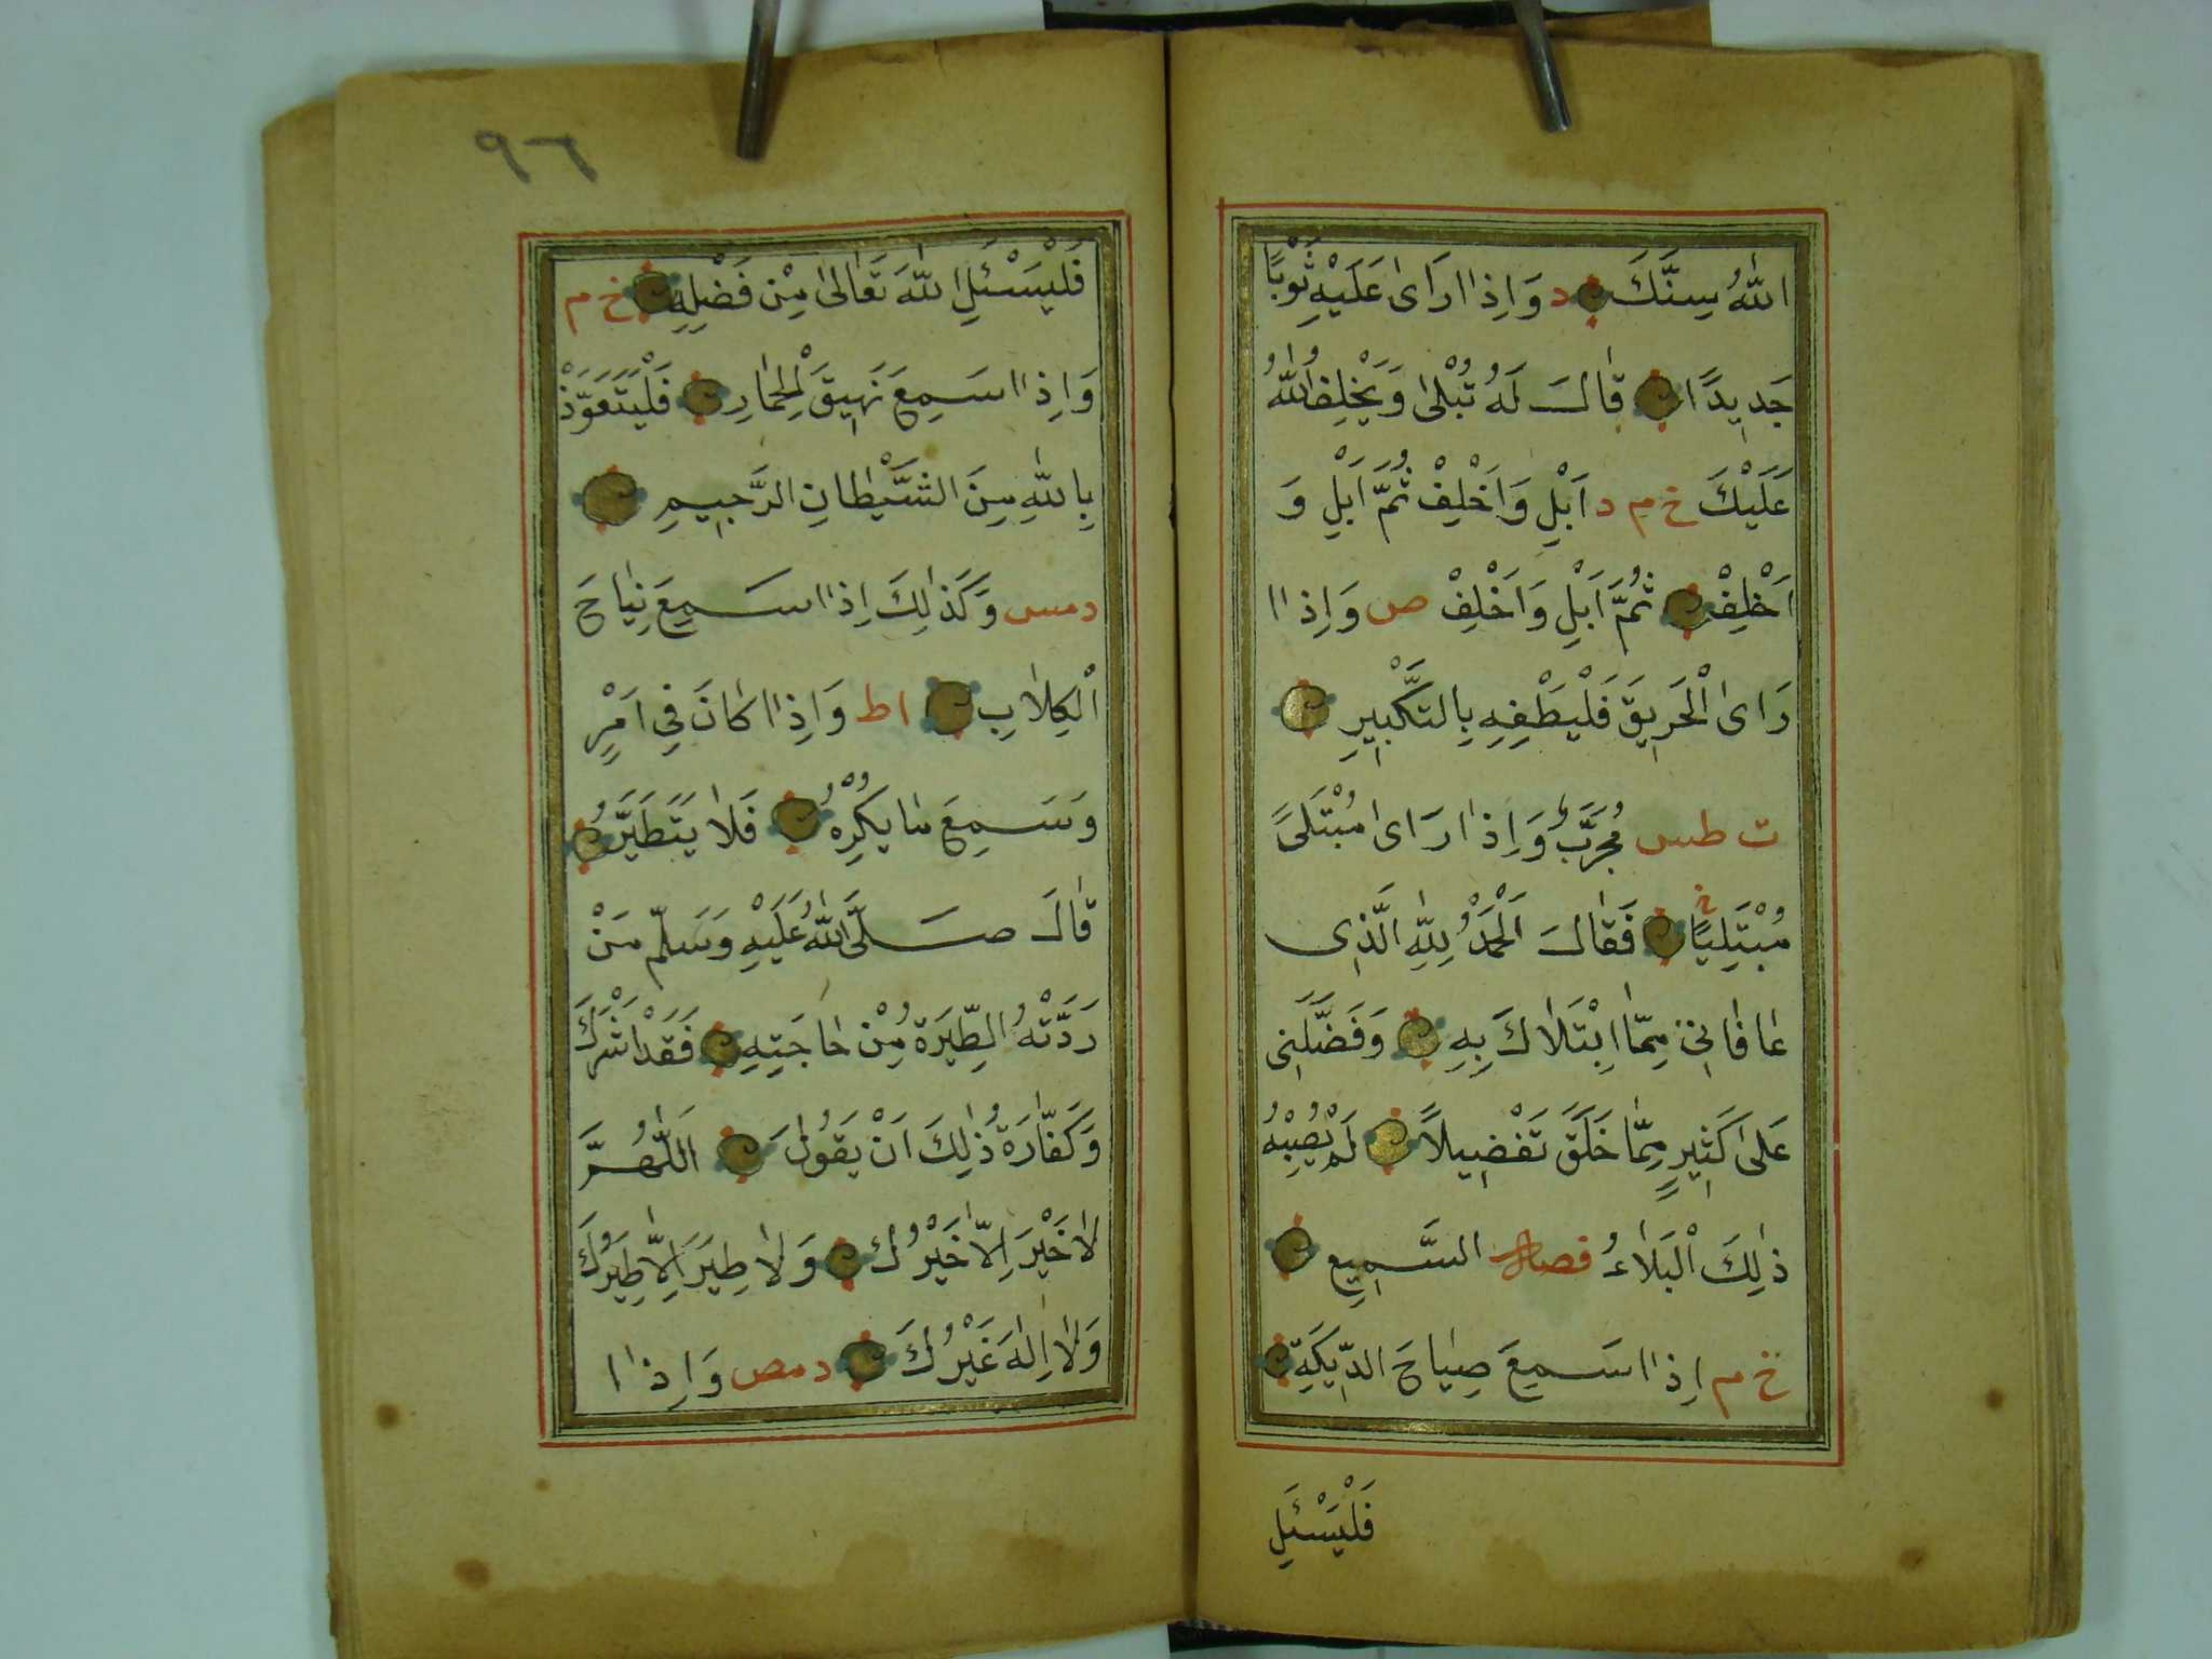 اللّٰهُ سِنَّكَ د وَاِذَا رَاٰى عَلَيْهِ ثَوْبًا
جَدِيدًا قَالَ لَهُ تُبْلٰى وَيُخْلِفُ اللّٰهُ
عَلَيْكَ خ م د اَبْلِ وَاَخْلِفْ ثُمَّ اَبْلِ وَ
اَخْلِفْ ثُمَّ اَبْلِ وَاَخْلِفْ ص وَاِذَا
رَاٰى الْحَرِيقَ فَلْيُطْفِهِ بِالتَّكْبِيرِ
ت طس مُجَرَّبٌ وَاِذَا رَاٰى مُبْتَلًى
مُبْتَلِيًا خ فَقَالَ اَلْحَمْدُ لِلّٰهِ الَّذِى
عَافَانِى مِمَّا ابْتَلَاكَ بِهِ وَفَضَّلَنِى
عَلٰى كَثِيرٍ مِمَّا خَلَقَ تَفْضِيلاً لَمْ يُصِبْهُ
ذٰلِكَ الْبَلَاءُ السَّمِيع
خ م اِذَا سَمِعَ صِيَاحَ الدِّيَكَةِ
فَلْيَسْئَلِ
٩٦
فَلْيَسْئَلِ اللّٰهَ تَعَالٰى مِنْ فَضْلِهِ خ م
وَاِذَا سَمِعَ نَهِيقَ الْحِمَارِ فَلْيَتَعَوَّذْ
بِاللّٰهِ مِنَ الشَّيْطَانِ الرَّجِيمِ
دمس وَكَذٰلِكَ اِذَا سَمِعَ نِبَاحَ
الْكِلَابِ اط وَاِذَا كَانَ فِى اَمْرٍ
وَسَمِعَ مَا يَكْرَهُ فَلَا يَتَطَيَّرُ
قَالَ صَلَّى اللّٰهُ عَلَيْهِ وَسَلَّمَ مَنْ
رَدَّتْهُ الطِّيَرَةُ مِنْ حَاجَتِهِ فَقَدْ اَشْرَكَ
وَكَفَّارَةُ ذٰلِكَ اَنْ يَقُولَ اَللّٰهُمَّ
لَا خَيْرَ اِلَّا خَيْرُكَ وَلَا طِيَرَ اِلَّا طِيَرُكَ
وَلَا اِلٰهَ غَيْرُكَ دمص وَاِذَا